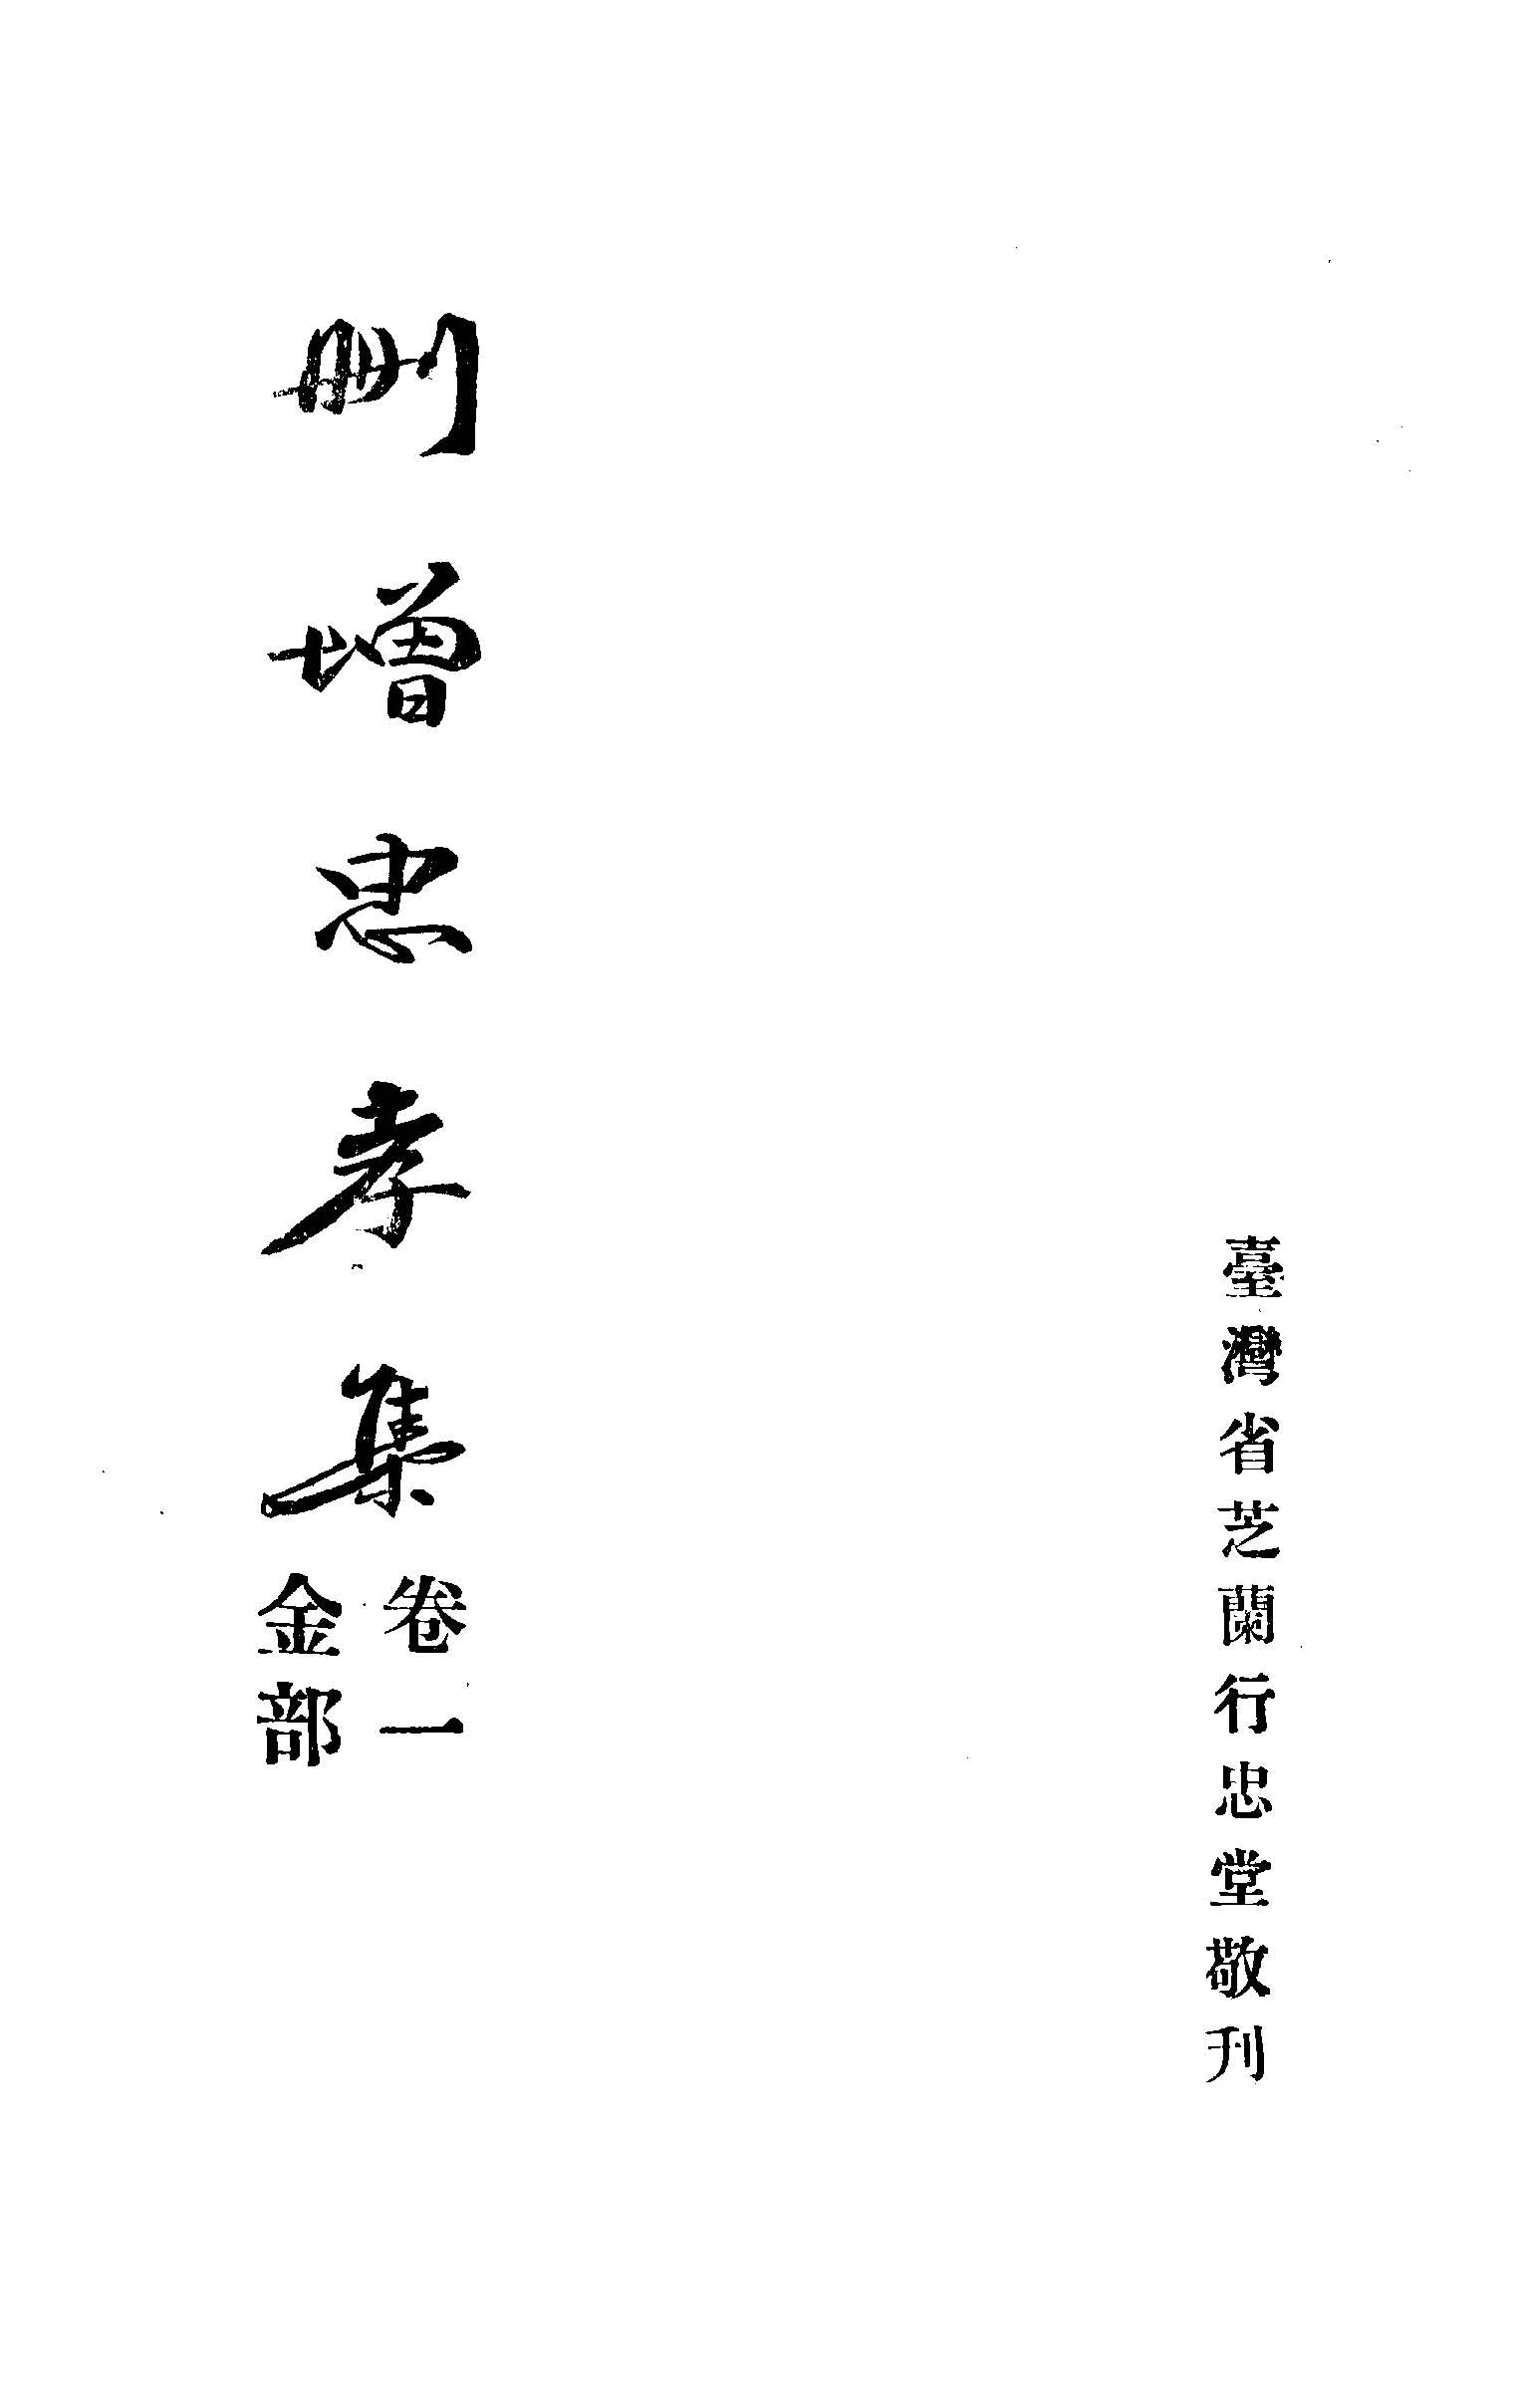 臺灣省芝蘭行忠堂敬刊
刪增忠孝集
卷一
金部